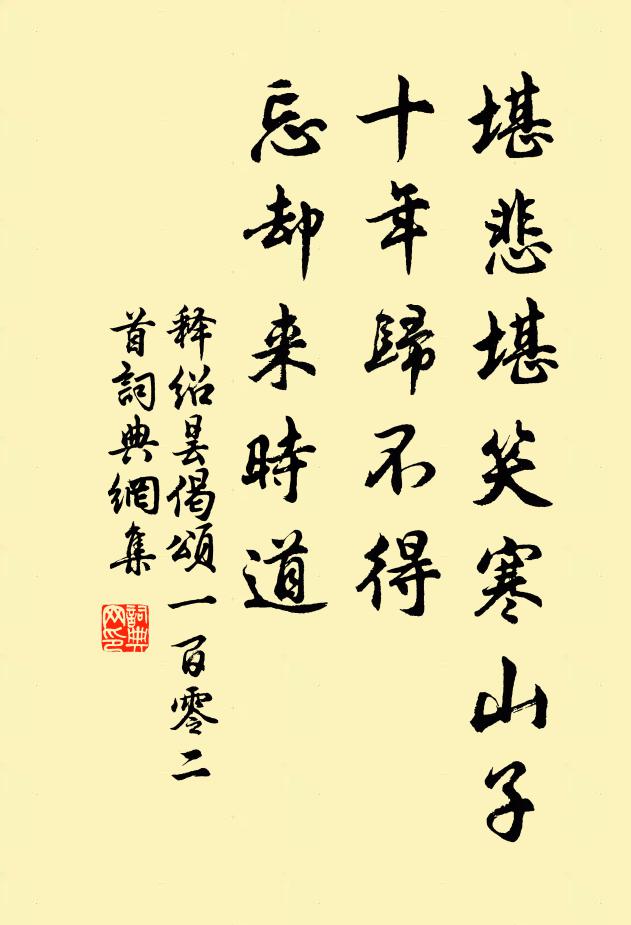 堪悲堪笑寒山子
十年歸不得
忘却来時道
释绍昙偈頌一百零二
首詞典網集
詞典
网印